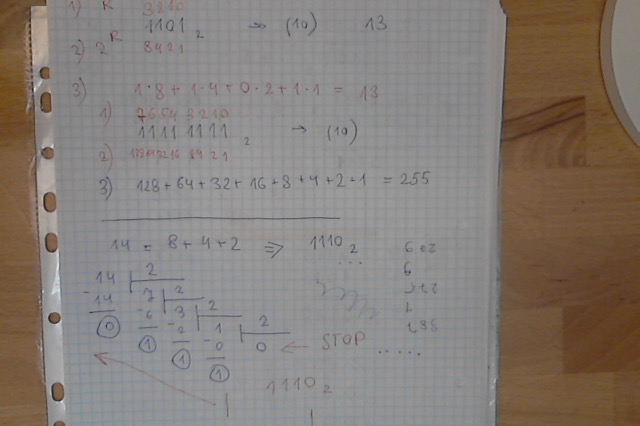 1) R 3210
1101₂ → (10) 13
2) 2^R 8421
3) 1·8 + 1·4 + 0·2 + 1·1 = 13
1) 7654 3210
1111 1111₂ → (10)
2) 128 64 32 16 8 4 2 1
3) 128 + 64 + 32 + 16 + 8 + 4 + 2 + 1 = 255
14 = 8 + 4 + 2 ⇒ 1110₂
14 2
-14 7 2
0 -6 3 2
1 -2 1 2
1 -0 0 ← STOP
1
1110₂